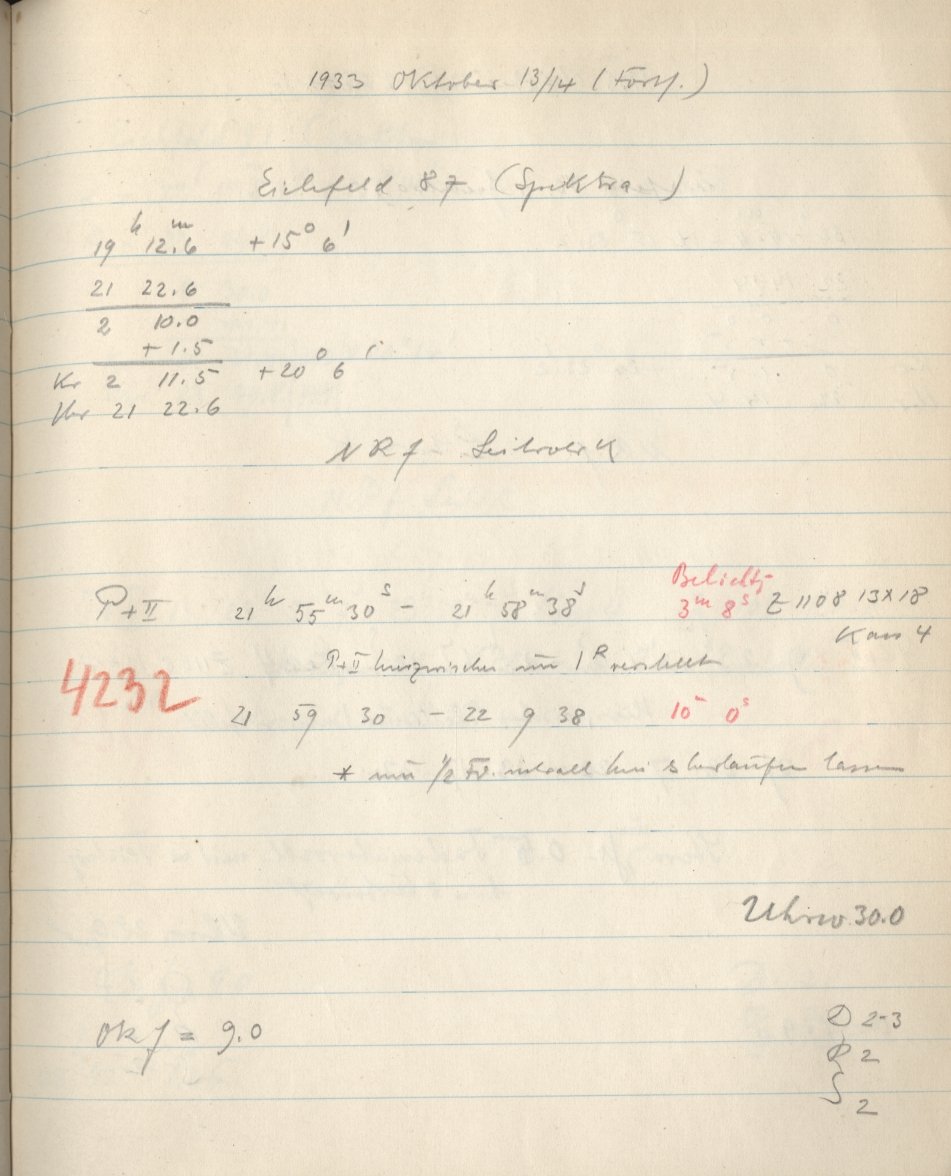 1933 Oktober 13/14 (Forts.)
Eichfeld 87 (Spektra)
19 h 12.6 m +15° 6'
21 22.6
2 10.0
+ 1.5
Kr 2 11.5 +20° 6'
Uhr 21 22.6
NRf
P+II 21 h 55 m 30 s - 21 h 58 m 38 s
Belichtg
3 m 8 s Z 1108 13x18
Kass 4
P+II inzwischen um 1 R verstellt
4232
21 59 30 - 22 9 38 10 m 0 s
* um 1/2 lassen
Uhrw. 30.0
Okf = 9.0
D 2-3
R 2
S 2